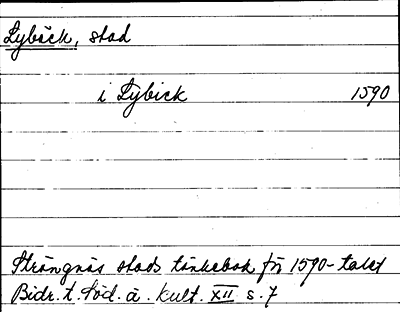 Lybäck, stad
i Lybick 1590
Strängnäs stads tänkebok för 1590-talet
Bidr. t. Söd. ä. kult. XII s. 7